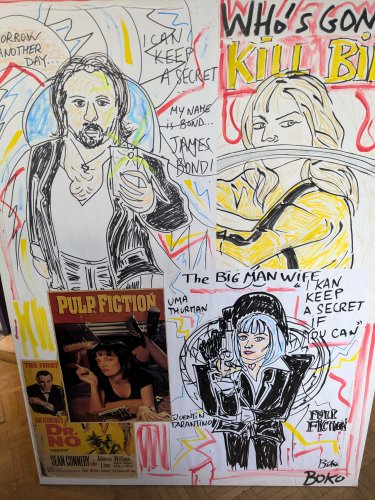 ORROW
ANOTHER
DAY...
I CAN
KEEP
A SECRET
MY NAME
is BOND...
JAMES
BOND!
WHO'S GON
KILL Bil
The BIG MAN WIFE
UMA
THURMAN
"I KAN
KEEP
A SECRET
IF
YOU CAN"
QUENTIN
TARANTINO
PULP
FICTION
Boko
BOKO
PULP FICTION
THE FIRST
DR.
NO
SEAN CONNERY